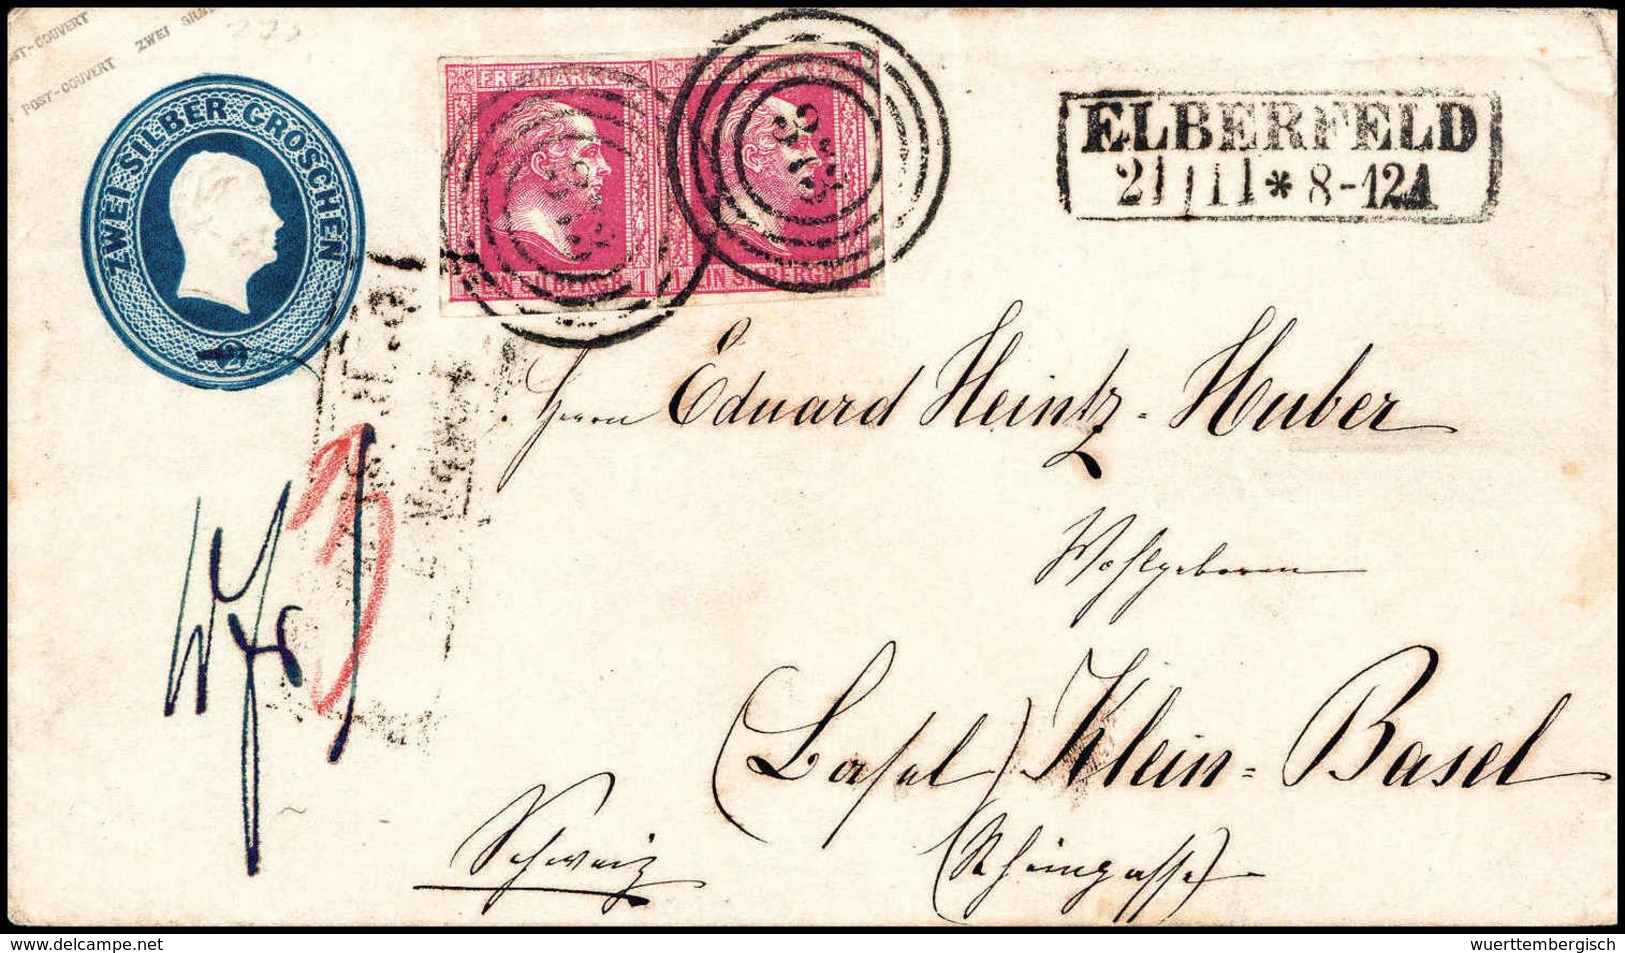 POST-COUVERT ZWEI
POST-COUVERT ZWEI SILB
ZWEI SILBER GROSCHEN
2
FREIMARKE
EIN SILBERGR. 1
1 EIN SILBERGR. 1
ELBERFELD
21 11 * 8-12 A
Herrn Eduard Heintz-Huber
Wohlgeboren
(Basel) Klein-Basel
(Rheingasse)
Schweiz
3
delcampe.net
wuerttembergisch